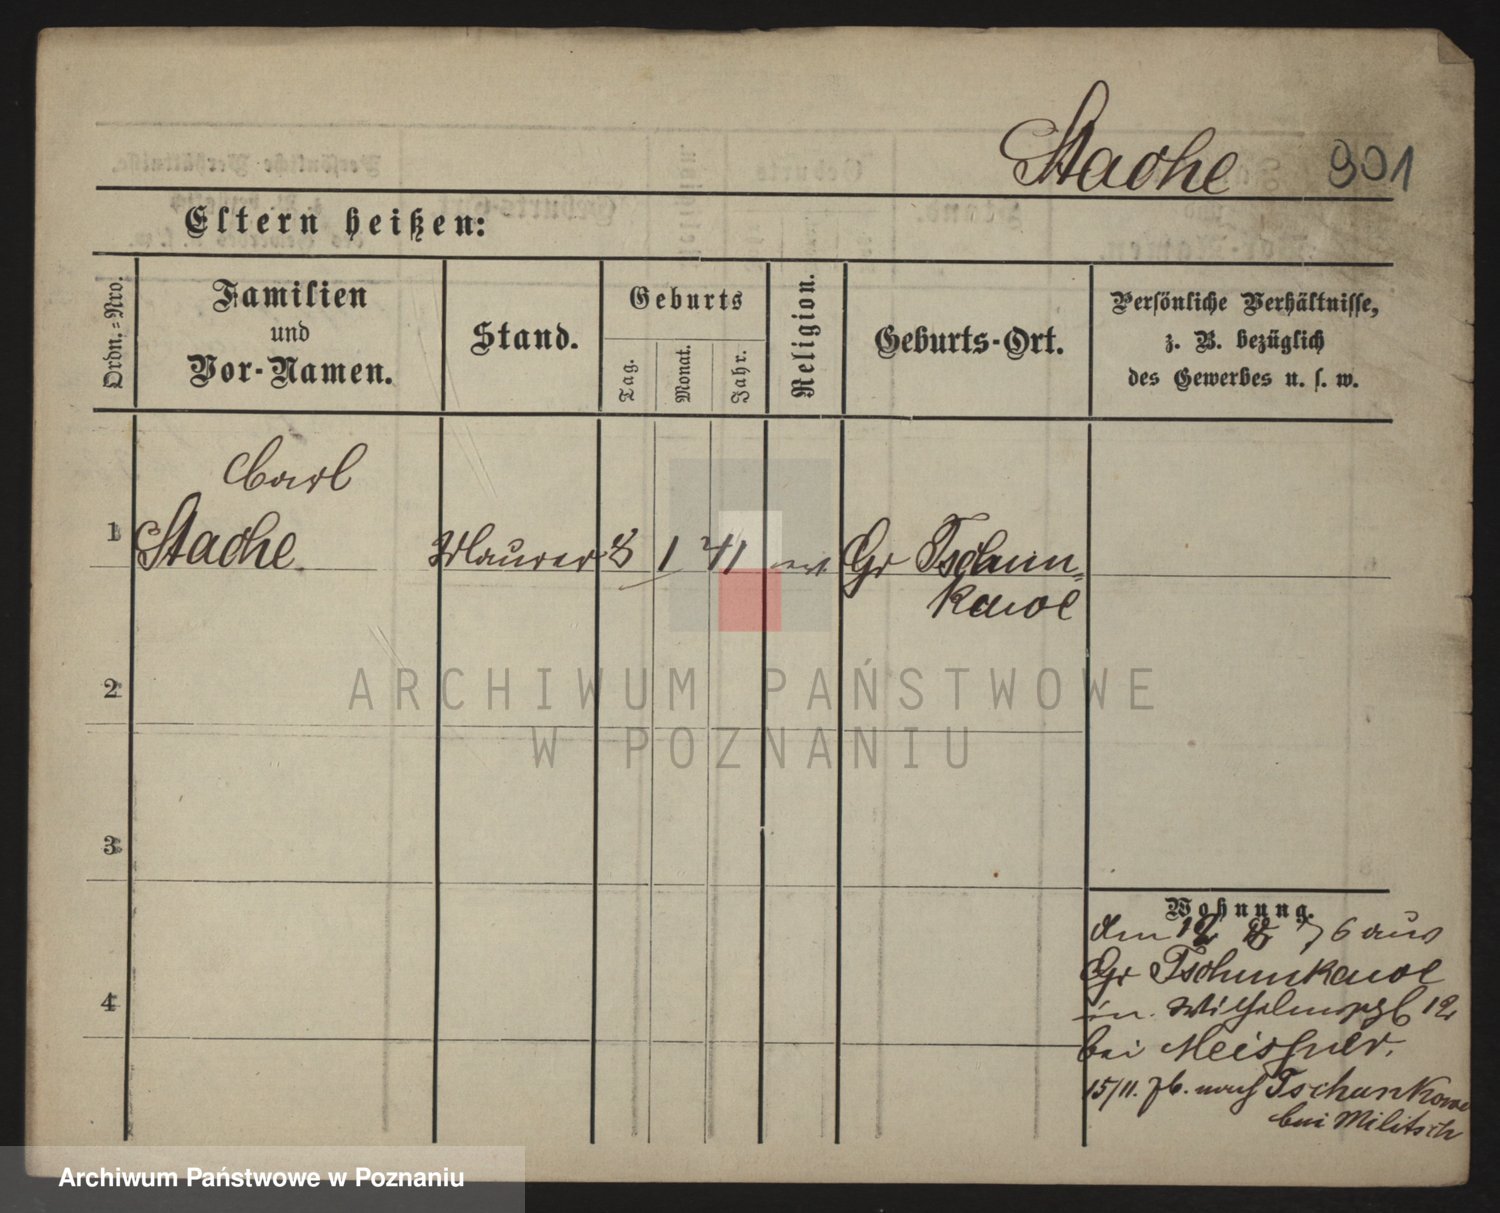 Stache 901
Eltern heißen:
Ordn.=Nro.
Familien
und
Vor-Namen.
Stand.
Geburts
Tag.
Monat.
Jahr.
Religion.
Geburts-Ort.
Persönliche Verhältnisse,
z. B. bezüglich
des Gewerbes u. s. w.
Carl
1 Stache Maurer 8 1 41 ev Gr Tschun=
kawe
2
3
4
Wohnung.
den 12 76 aus
Gr Tschunkawe
in Wilhelmspl 12
bei Meissner.
15/11. 76. nach Tschunkawe
bei Militsch
ARCHIWUM PAŃSTWOWE
W POZNANIU
Archiwum Państwowe w Poznaniu